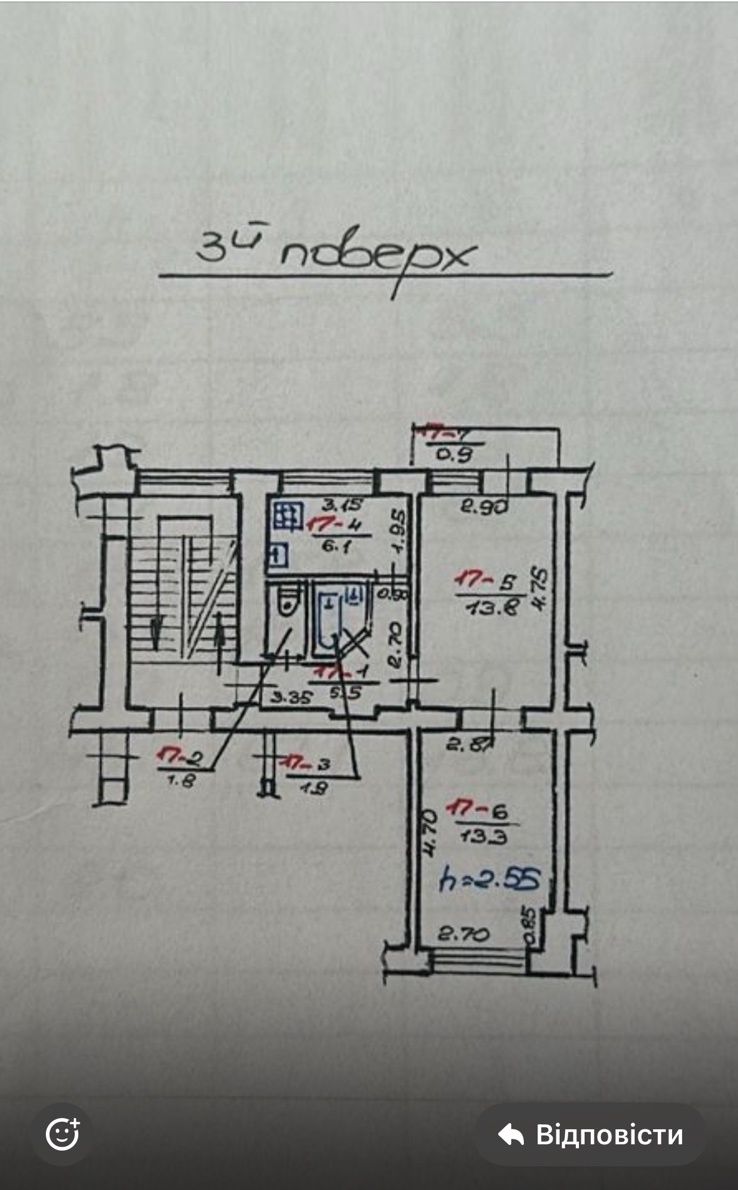 3й поверх
17-7
0.9
3.15
17-4
6.1
1.95
2.90
17-5
13.8
4.75
0.90
2.70
17-1
5.5
3.35
17-2
1.8
17-3
1.8
2.87
17-6
13.3
4.70
h=2.55
2.70
0.85
Відповісти